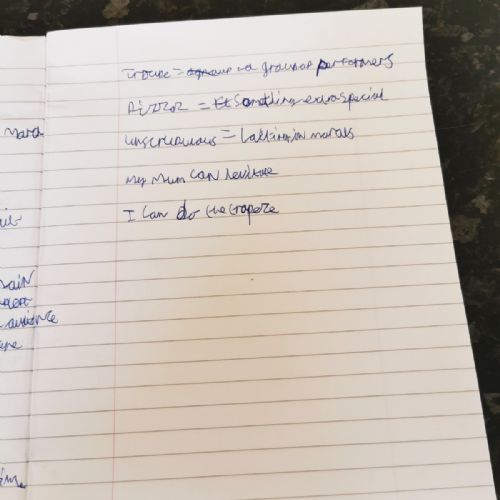 March
Troupe = a group of performers
Pizzaz = Something extra special
unscrupulous = lacking in morals
my Mum can levitate
I can do the trapeze
audience